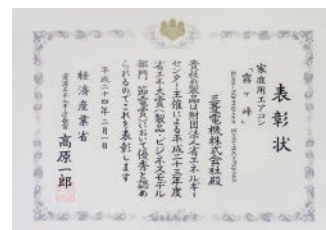 表彰状
家庭用エアコン
「霧ヶ峰」
三菱電機株式会社殿
貴社の製品は財団法人省エネルギー
センター主催による平成二十三年度
省エネ大賞(製品・ビジネスモデル
部門)節電賞において優秀と認め
られるのでこれを表彰します
平成二十四年二月一日
経済産業省
資源エネルギー庁長官
高原一郎